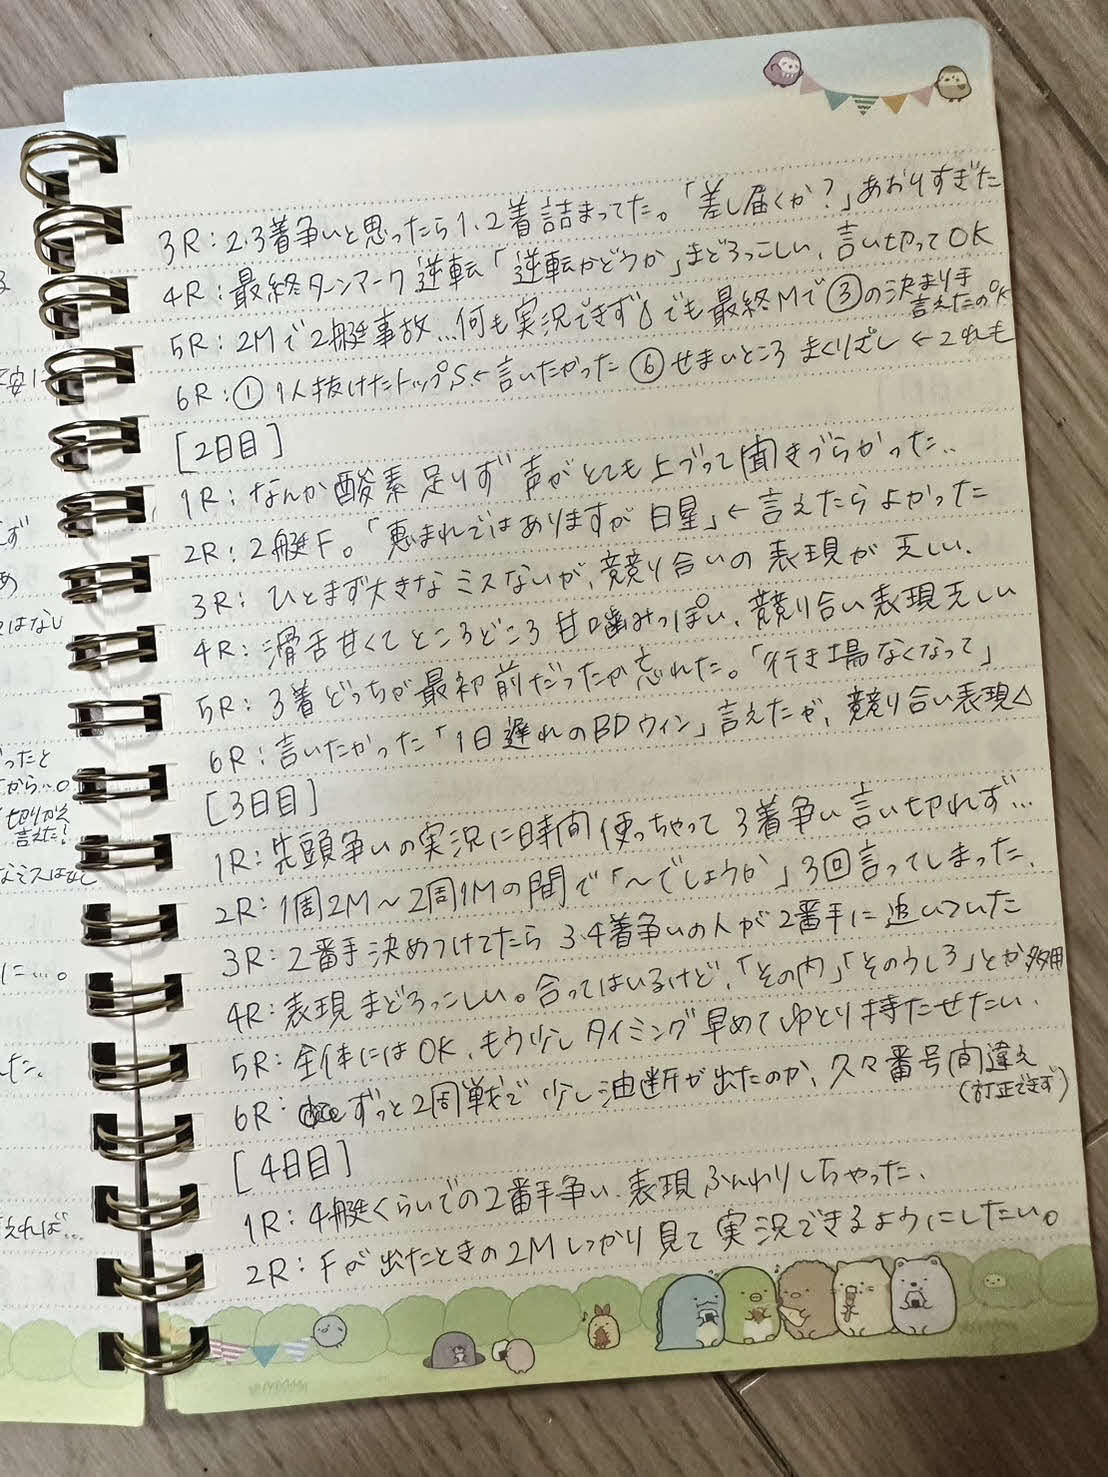 3R:2.3着争いと思ったら1.2着詰まってた。「差し届くか?」あおりすぎた
4R:最終ターンマーク逆転「逆転かどうか」まどろっこしい、言い切ってOK
5R:2Mで2艇事故...何も実況できず でも最終Mで③の決まり手
言えたのOK
6R:①1人抜けたトップS←言いたかった ⑥せまいところ まくりざし ←これも
[2日目]
1R:なんか酸素足りず 声がとても上ずって聞きづらかった..
2R:2艇F。「恵まれではありますが 白星」←言えたらよかった
3R:ひとまず大きなミスないが、競り合いの表現が乏しい.
4R:滑舌甘くてところどころ甘噛みっぽい、競り合い表現乏しい
5R:3着どっちが最初前だったか忘れた。「行き場なくなって」
6R:言いたかった「1日遅れのBDウィン」言えたが、競り合い表現△
[3日目]
1R:先頭争いの実況に時間使っちゃって3着争い言い切れず...
2R:1周2M～2周1Mの間で「～でしょうか」3回言ってしまった.
3R:2番手決めつけてたら 3.4着争いの人が2番手に追いついた
4R:表現まどろっこしい。合ってはいるけど、「その内」「そのうしろ」とか多用
5R:全体にはOK、もう少しタイミング早めてゆとり持たせたい.
6R:ずっと2周戦で少し油断が出たのか、久々番号間違え
(訂正できず)
[4日目]
1R:4艇くらいでの2番手争い、表現ふんわりしちゃった、
2R:Fが出たときの2Mしっかり見て実況できるようにしたい。